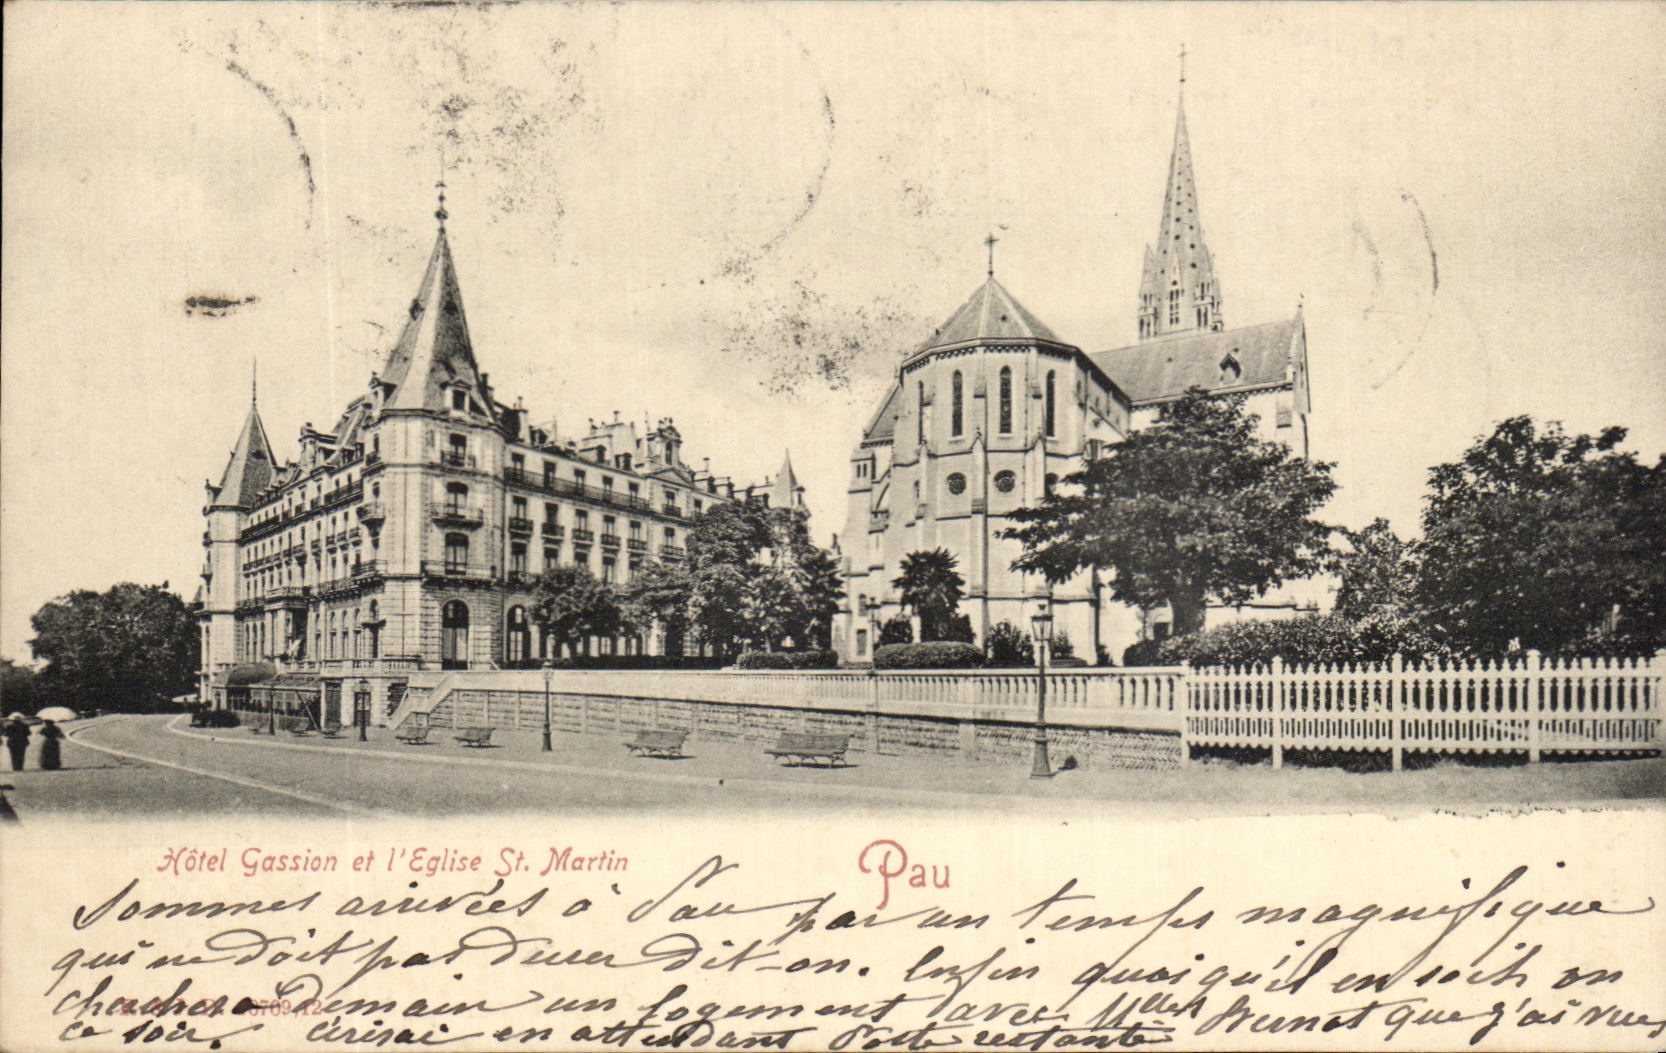 Hôtel Gassion et l'Eglise St. Martin
Pau
Sommes arrivées à Pau par un temps magnifique
qui ne doit pas durer dit-on. Enfin quoiqu'il en soit on
cherchera demain un logement avec Mlles que j'ai vues
ce soir. écrirai en attendant Poste restante